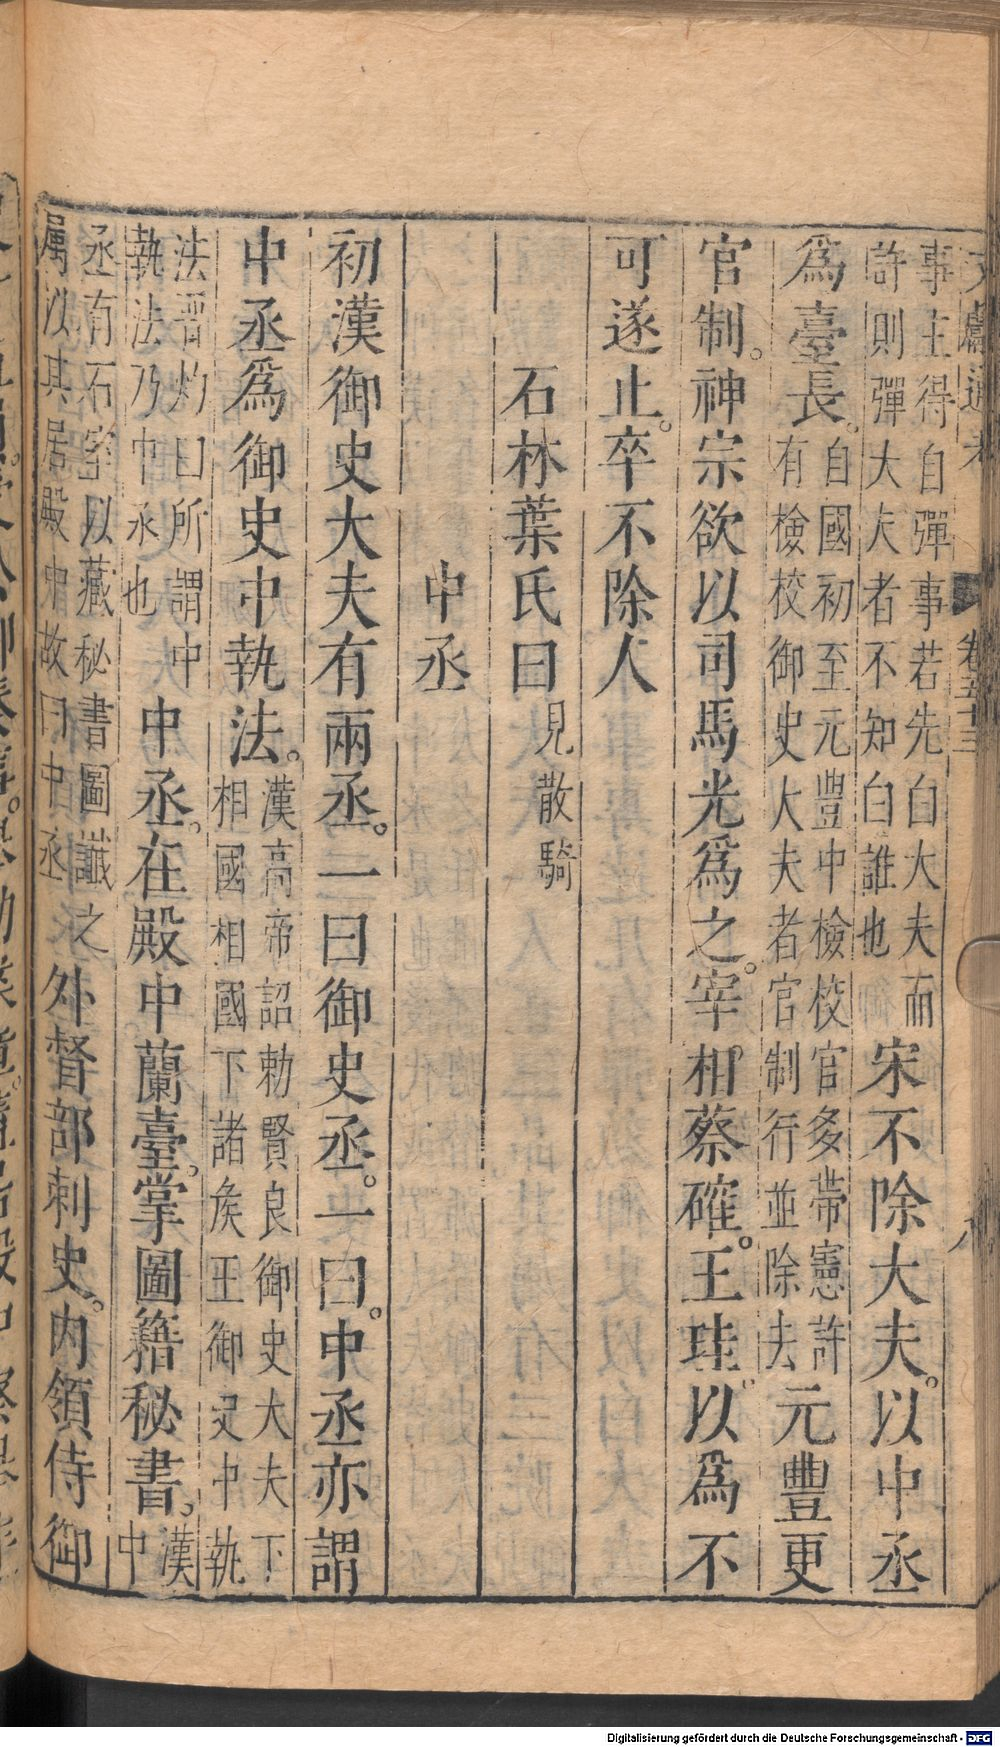 文獻通考 卷五十三 八
事主得自彈事若先白大夫而
許則彈大夫者不知白誰也
宋不除大夫。以中丞
爲臺長。
自國初至元豐中檢校官多帶憲許
有檢校御史大夫者官制行並除去
元豐更
官制。神宗欲以司馬光爲之。宰相蔡確。王珪以爲不
可遂止。卒不除人
石林葉氏曰見散騎
中丞
初漢御史大夫有兩丞。一曰御史丞。一曰。中丞亦謂
中丞爲御史中執法。
漢高帝詔勑賢良御史大夫下
相國相國下諸矦王御史中執
法晋灼曰所謂中
執法乃中丞也
中丞。在殿中蘭臺。掌圖籍秘書。
漢中
丞有石室以藏秘書圖讖之
属以其居殿中故曰中丞
外督部刺史。内領侍御
Digitalisierung gefördert durch die Deutsche Forschungsgemeinschaft - DFG